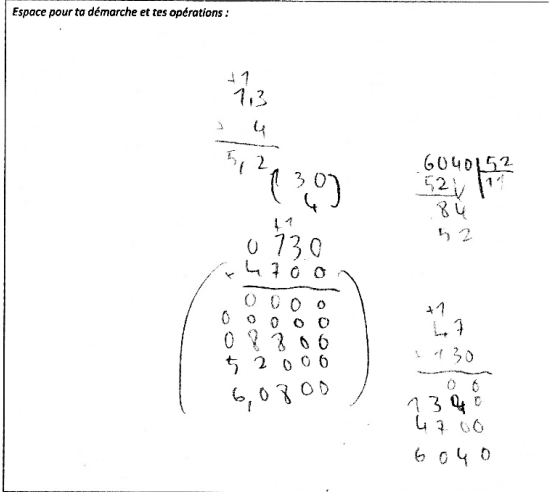 Espace pour ta démarche et tes opérations :
+1
1,3
× 4
5,2
(30
4)
+1
0130
× 4700
0000
00000
08800
52000
6,0800
6040|52
52 |11
84
52
+1
47
× 130
00
1340
4700
6040